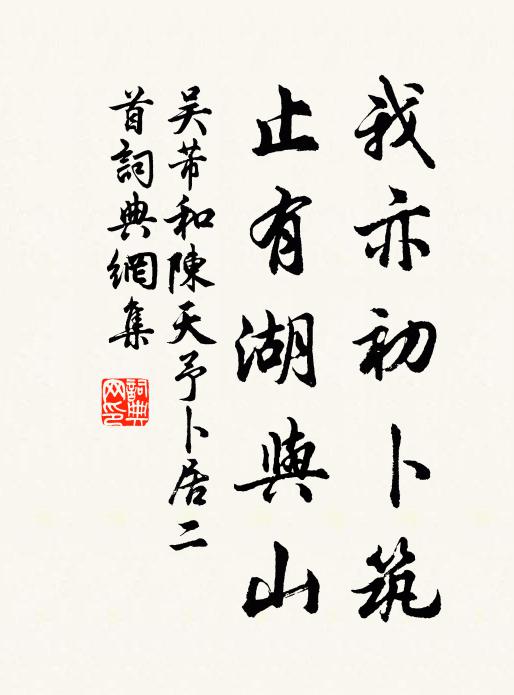 我亦初卜筑
止有湖與山
吴芾和陳天予卜居二
首詞典網集
詞典網印